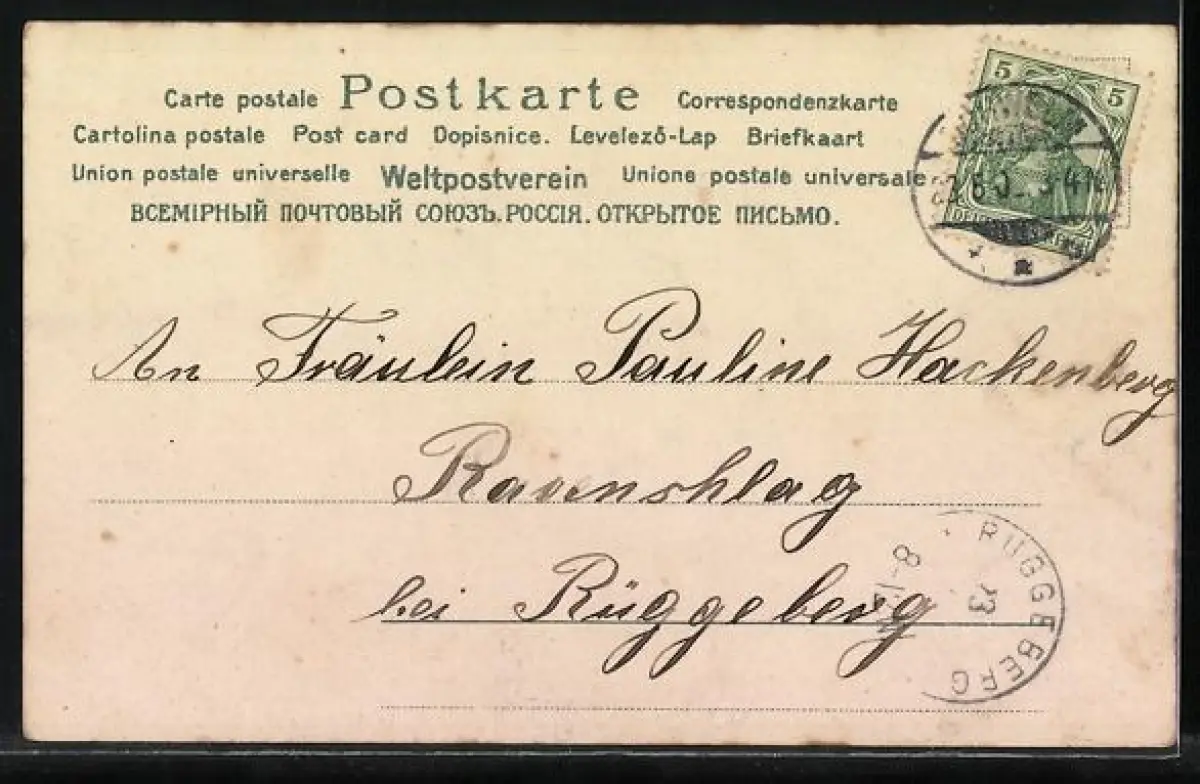 Carte postale Postkarte Correspondenzkarte
Cartolina postale Post card Dopisnice. Levelező-Lap Briefkaart
Union postale universelle Weltpostverein Unione postale universale
ВСЕМІРНЫЙ ПОЧТОВЫЙ СОЮЗЪ. РОССІЯ. ОТКРЫТОЕ ПИСЬМО.
5 5
An Fräulein Pauline Hackenberg
Ravenshlag
bei Rüggeberg
RÜGGEBERG